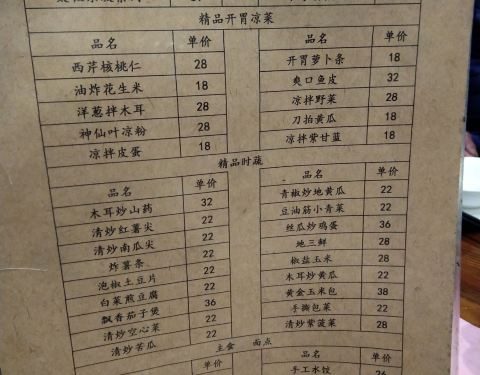 精品开胃凉菜
品名 单价 品名 单价
西芹核桃仁 28 开胃萝卜条 18
油炸花生米 18 爽口鱼皮 32
洋葱拌木耳 28 凉拌野菜 28
神仙叶凉粉 28 刀拍黄瓜 18
凉拌皮蛋 18 凉拌紫甘蓝 18
精品时蔬
品名 单价 品名 单价
木耳炒山药 32 青椒炒地黄瓜 22
清炒红薯尖 22 豆油筋小青菜 22
清炒南瓜尖 22 丝瓜炒鸡蛋 36
炸薯条 22 地三鲜 28
泡椒土豆片 22 椒盐玉米 28
白菜煎豆腐 22 木耳炒黄瓜 22
飘香茄子煲 36 黄金玉米包 38
清炒空心菜 22 手撕包菜 22
清炒苦瓜 22 清炒紫菠菜 28
主食 面点
单价 品名 单价
手工水饺 26